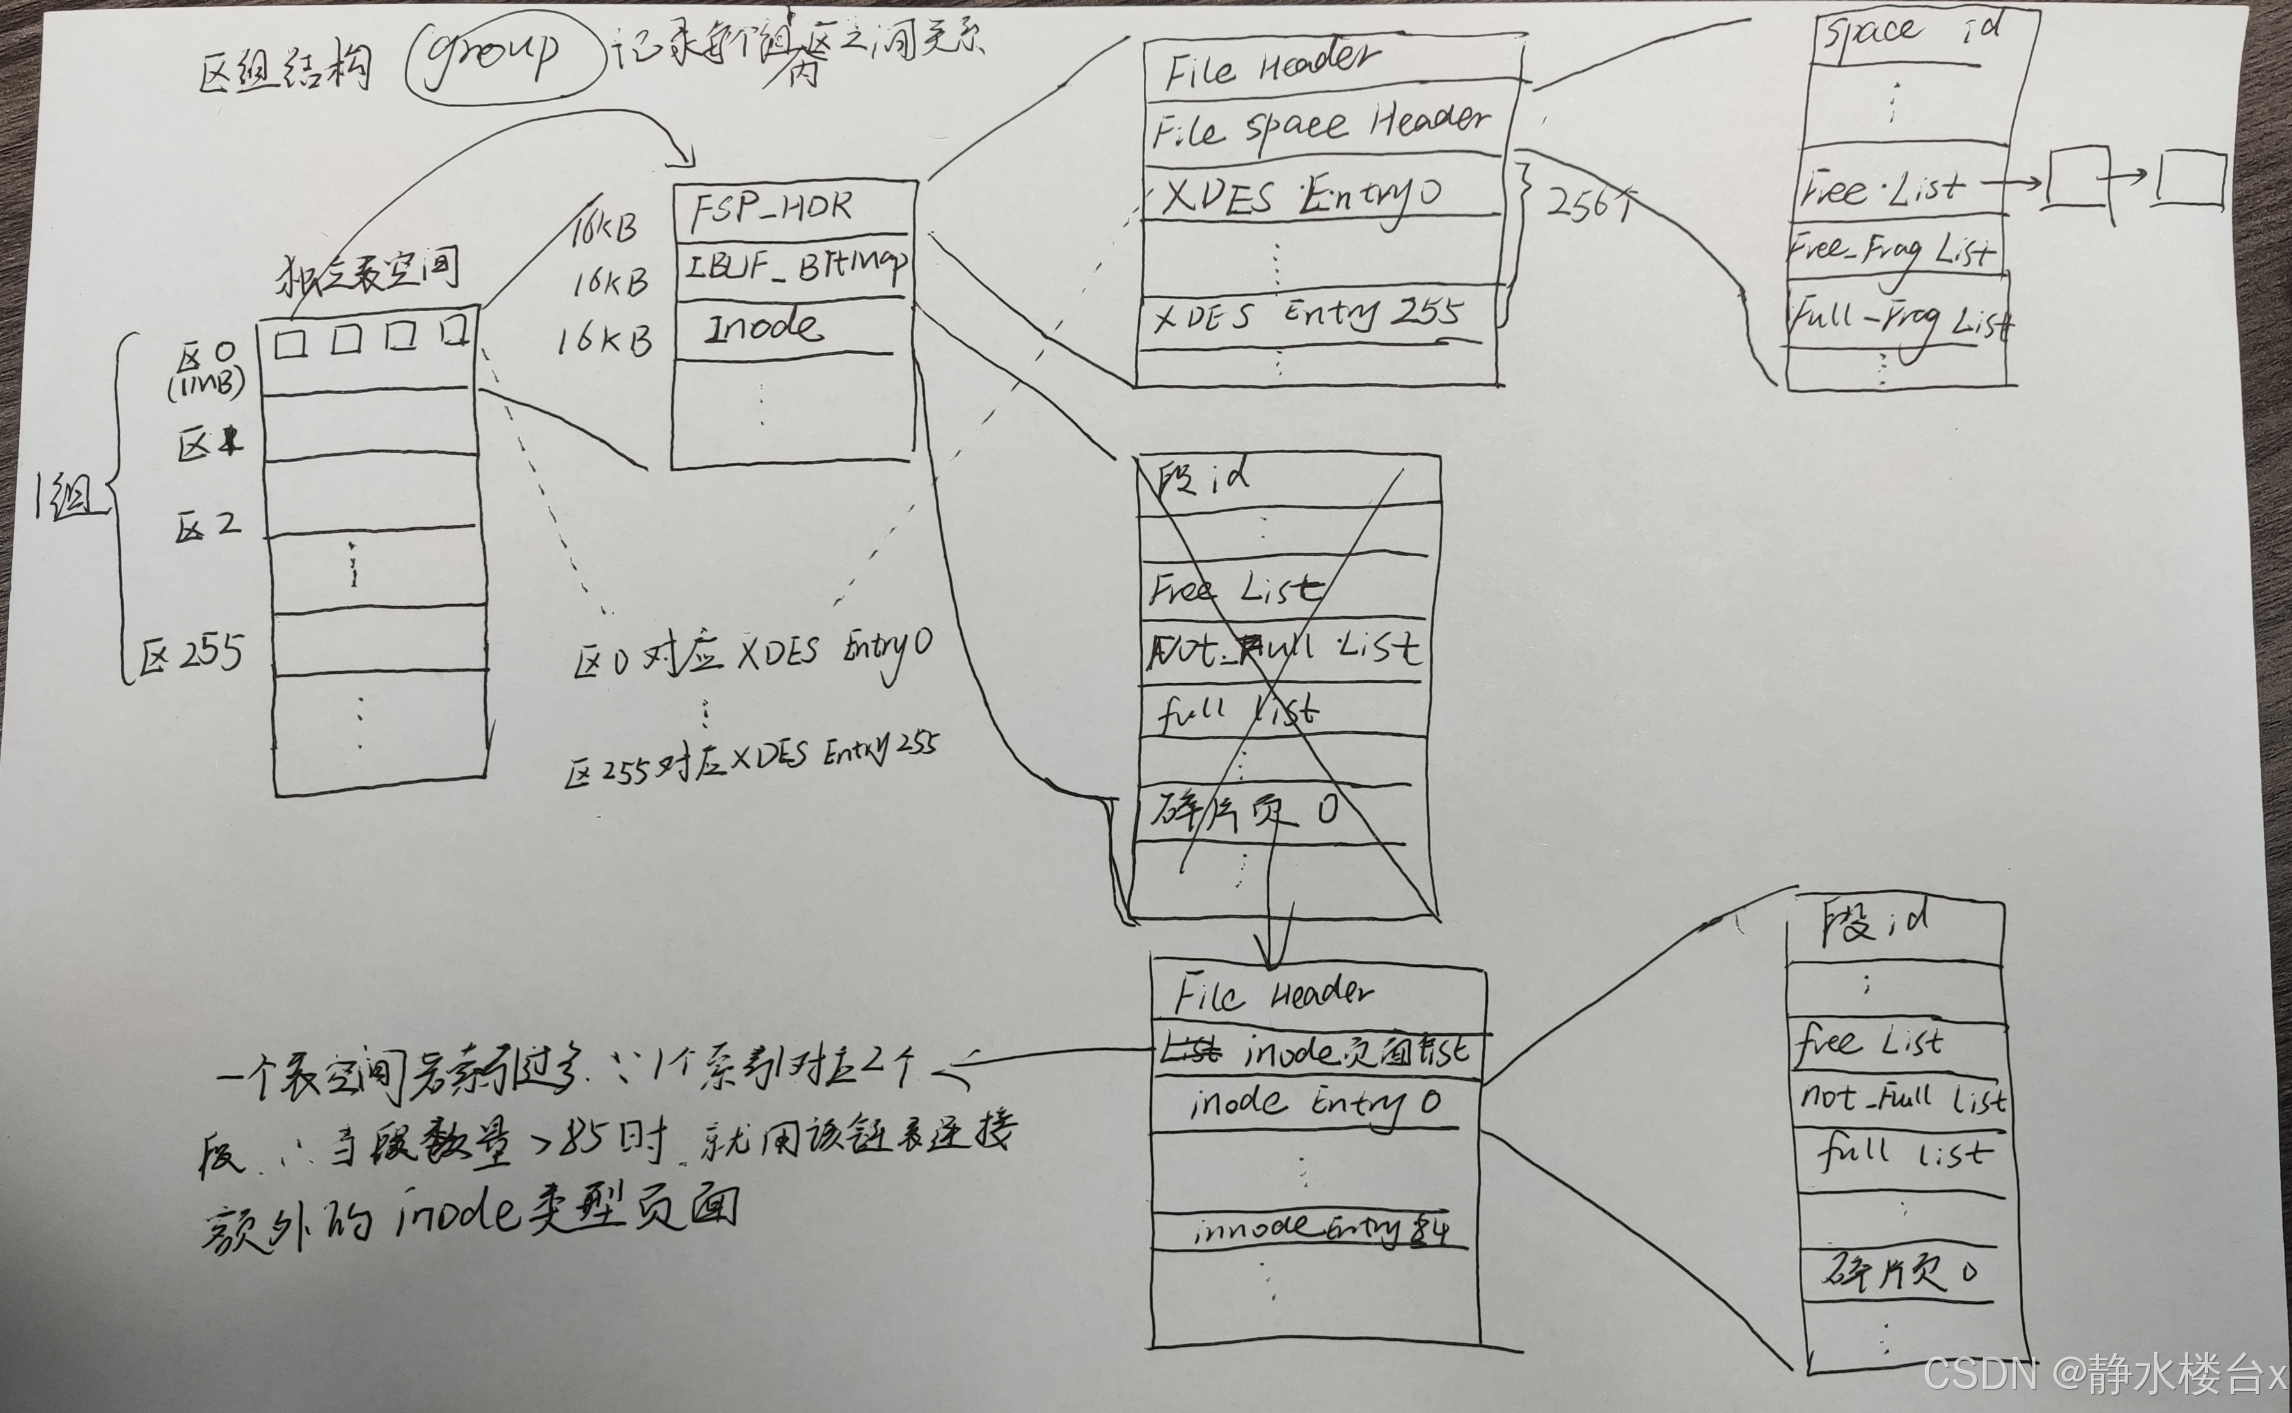 区组结构 group 记录每个组内区之间关系
独立表空间
1组
区0
(1MB)
区1
区2
区255
16kB
16kB
16KB
FSP_HDR
IBUF_BItmap
Inode
File Header
File space Header
XDES Entry0
XDES Entry 255
256个
space id
Free List
Free_Frag List
Full_Frag List
区0对应XDES Entry0
区255对应XDES Entry255
段id
Free List
Not_Full List
full list
碎片页 0
File Header
List inode页面list
inode Entry 0
innode Entry 84
一个表空间若索引过多 ∵1个索引对应2个
段 ∴当段数量>85时 就用该链表连接
额外的inode类型页面
段id
free List
not_Full List
full list
碎片页0
CSDN @静水楼台x